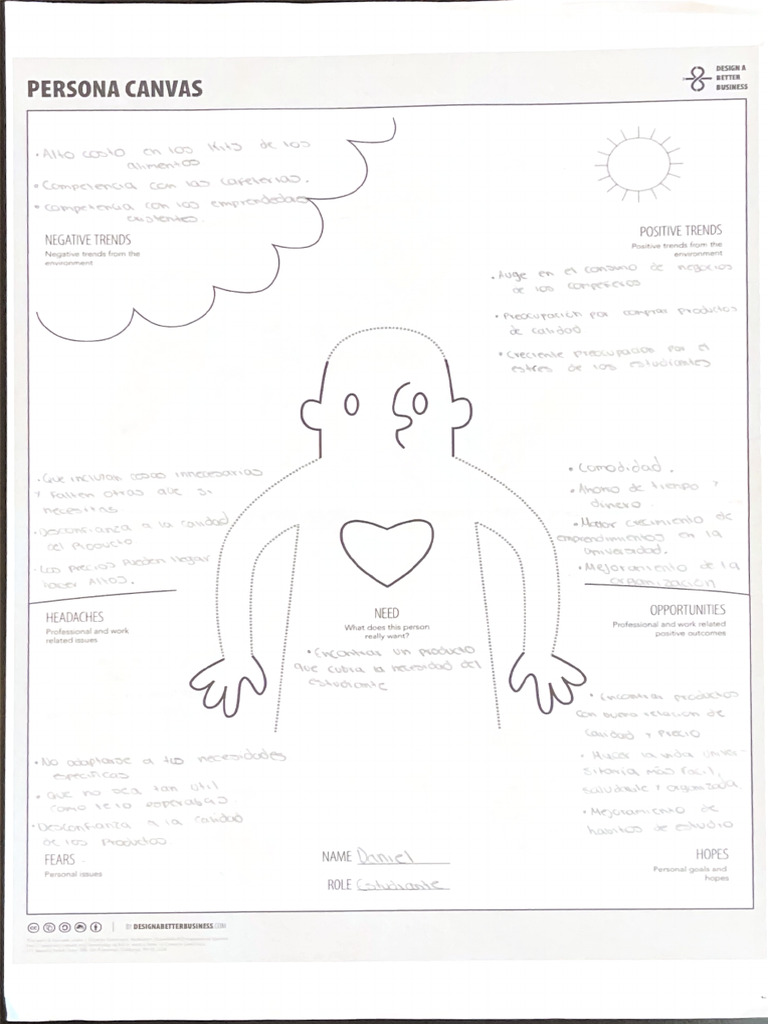 PERSONA CANVAS
DESIGN A
BETTER
BUSINESS
• Alto costo en los Kits de los
alimentos
• Competencia con las cafeterías.
• Competencia con los emprendedores
existentes.
NEGATIVE TRENDS
Negative trends from the
environment
POSITIVE TRENDS
Positive trends from the
environment
• Auge en el consumo de negocios
de los compañeros
• Preocupación por comprar productos
de calidad
• Creciente preocupación por el
estres de los estudiantes
• Que incluyan cosas innecesarias
y falten otras que si
necesitas
• Desconfianza a la calidad
del Producto
• Los precios pueden llegar
hacer Altos.
HEADACHES
Professional and work
related issues
• Comodidad.
• Ahorro de tiempo y
dinero
• Mayor crecimiento de
emprendimientos en la
universidad.
• Mejoramiento de la
organización
OPPORTUNITIES
Professional and work related
positive outcomes
NEED
What does this person
really want?
• Encontrar un producto
que cubra la necesidad del
estudiante
• No adaptarse a tus necesidades
especificas
• que no sea tan útil
como te lo esperabas
• Desconfianza a la calidad
de los Productos
FEARS
Personal issues
• Encontrar productos
con buena relación de
calidad y Precio
• Hacer la vida univer-
sitaria más facil,
saludable y organizada
• Mejoramiento de
habitos de estudio
HOPES
Personal goals and
hopes
NAME Daniel
ROLE Estudiante
BY DESIGNABETTERBUSINESS.COM